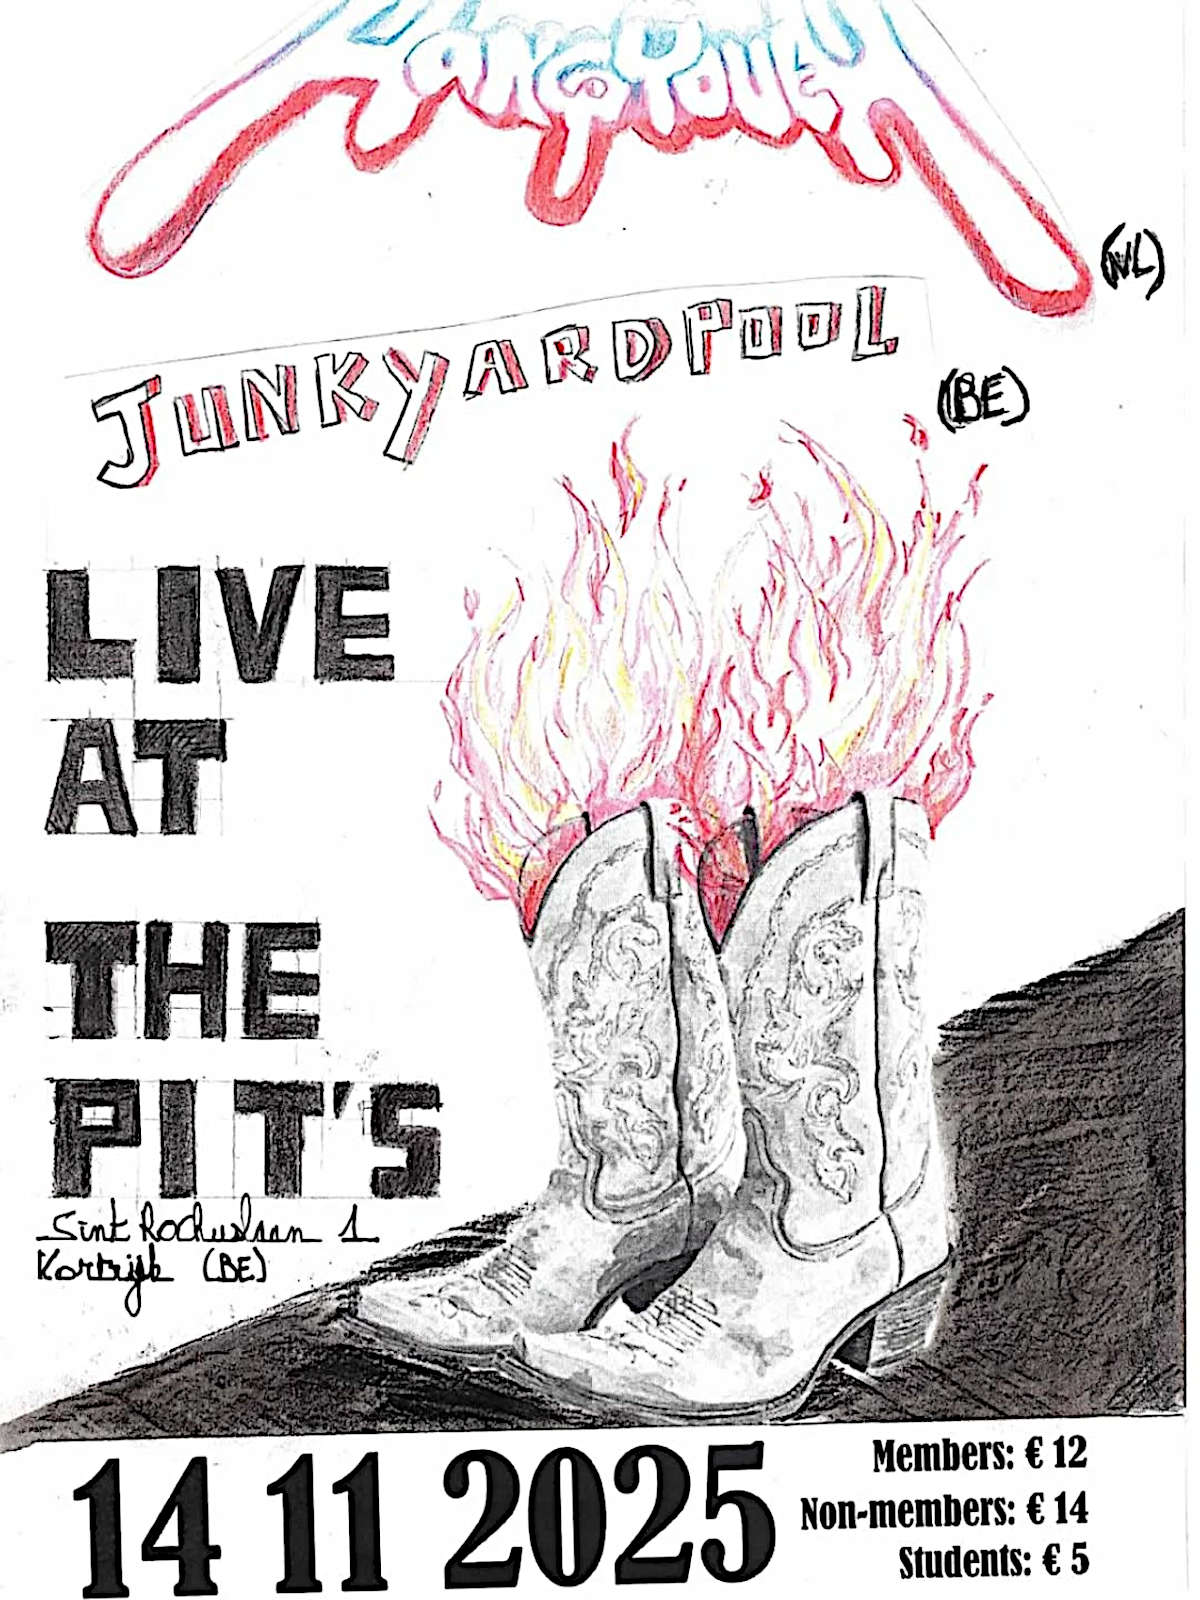 (NL)
JUNKYARDPOOL
(BE)
LIVE
AT
THE
PIT'S
Sint Rochuslaan 1
Kortrijk (BE)
14 11 2025
Members: € 12
Non-members: € 14
Students: € 5